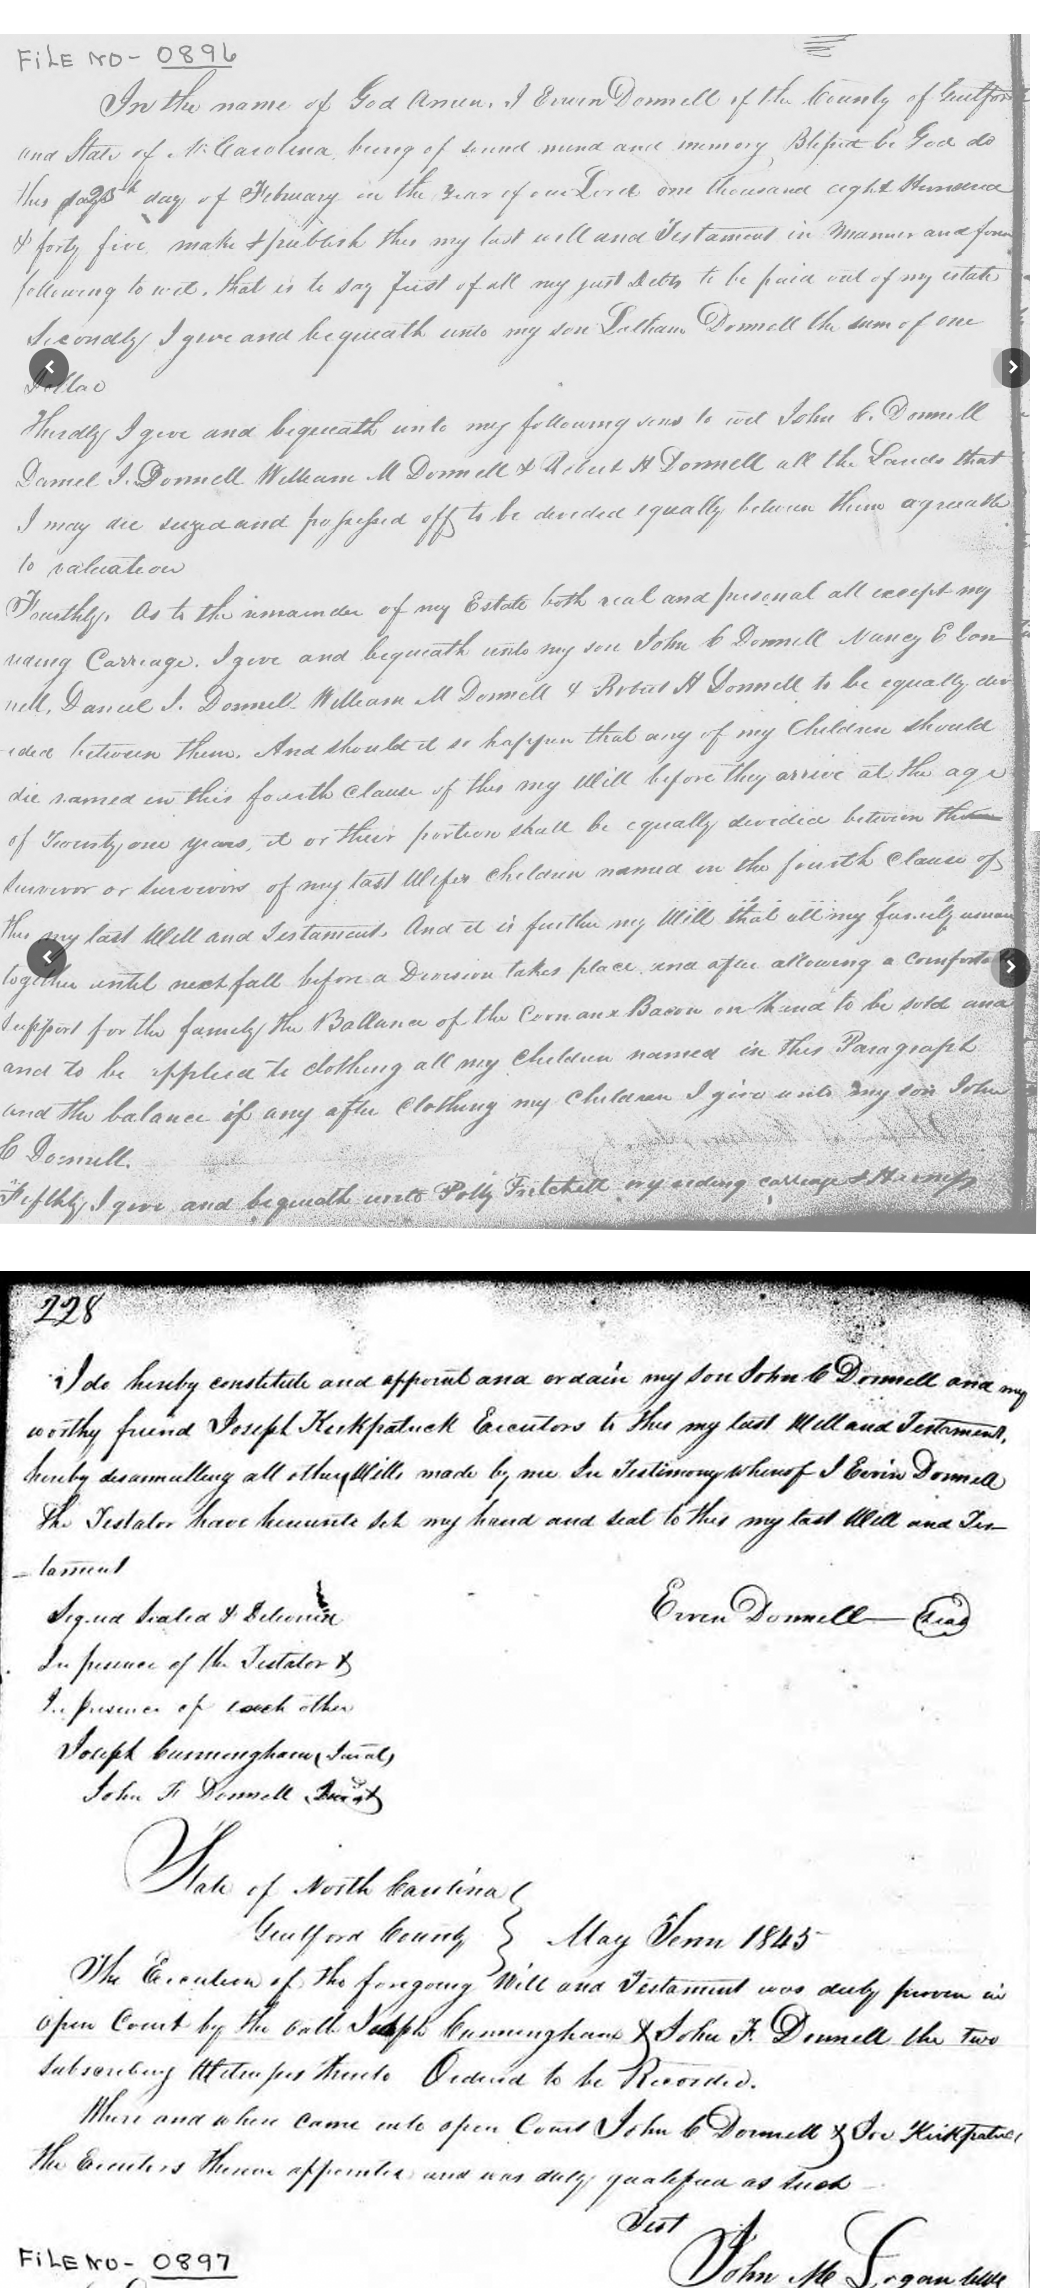 FILE NO- 0896
In the name of God Amen. I Erwin Donnell of the County of Guilford
and State of N. Carolina being of sound mind and memory Blessed be God do
this 25th day of February in the year of our Lord one thousand eight Hundred
& forty five make & publish this my last will and Testament in Manner and form
following to wit. that is to say first of all my just Debts to be paid out of my estate
Secondly I give and bequeath unto my son Latham Donnell the sum of one
Dollar
Thirdly I give and bequeath unto my following sons to wit John C. Donnell
Daniel I. Donnell William M Donnell & Robert H Donnell all the Lands that
I may die seized and possessed off to be devided equally between them agreeable
to valuation
Fourthly. As to the remainder of my Estate both real and personal all except my
riding Carriage. I give and bequeath unto my son John C Donnell Nancy E Don-
nell. Daniel I. Donnell William M Donnell & Robert H Donnell to be equally div
ided between them. And should it so happen that any of my Children should
die named in this fourth Clause of this my Will before they arrive at the age
of Twenty one years, it or their portion shall be equally devided between
survivor or survivors of my last Wifes children named in the fourth Clause of
this my last Will and Testament. And it is further my Will that all my family
together until next fall before a Devision takes place and after allowing a comfortable
support for the family the Ballance of the Corn and Bacon on hand to be sold and
and to be applied to clothing all my children named in this Paragraph
and the balance if any after clothing my children I give unto my son John
C Donnell.
Fifthly I give and bequeath unto Polly Pritchett my riding carriage & Harness
228
I do hereby constitute and appoint and ordain my son John C Donnell and my
worthy friend Joseph Kirkpatrick Executors to this my last Will and Testament,
hereby disannulling all other Wills made by me In Testimony whereof I Erwin Donnell
the Testator have hereunto set my hand and seal to this my last Will and Tes-
-tament
Signed Sealed & Delivered
Erwin Donnell (Seal)
In presence of the Testator &
In presence of each other
Joseph Cunningham (Jurat)
John F Donnell Jurat
State of North Carolina
Guilford County } May Term 1845
The Execution of the foregoing Will and Testament was duly proven in
open Court by the oath Joseph Cunningham & John F. Donnell the two
subscribing Witnesses thereto Ordered to be Recorded.
Where and when came into open Court John C Donnell & Jos Kirkpatrick
the Executors therein appointed and was duly qualified as such
Test
John M Logan Clk
FILE NO- 0897